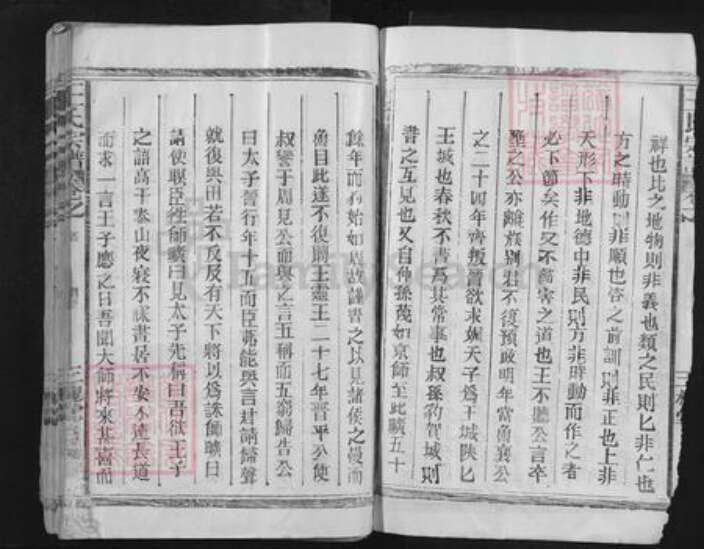 祥也比之地物則非義也類之民則非仁也
方之時動則非順也咨之前訓則非正也上非
天形下非地德中非民則方非時動而作之者
必下節矣作又不節害之道也王不聽公言卒
壅之公亦離族別君不復預政明年當魯襄公
之二十四年齊叛晉欲求媚天子為王城陝
王城也春秋不書為其常事也叔孫豹賀城則
書之互見也又自仲孫蔑如京師至此曠五十
餘年而始如周故謹書之以見諸侯之慢而
魯目此遂不復聞王靈王二十七年晉平公使
叔譽于周見公而與之言五稱而五窮歸告公
曰太子晉行年十五而臣弗能與言君請歸聲
就復與田若不反及有天下將以為誅師曠曰
請使瞑臣往師曠曰見太子先稱曰吾欲王子
之語高于泰山夜寢不寐晝居不安不遠長道
而求一言王子應之曰吾聞大師將來甚喜而
王氏宗譜
三槐堂
FamilySearch